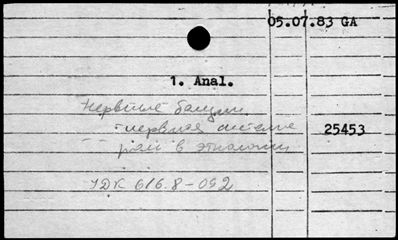 05.07.83 GA
1. Anal.
Нервные
нервная система
25453
в этиологии
УДК 616.8-092